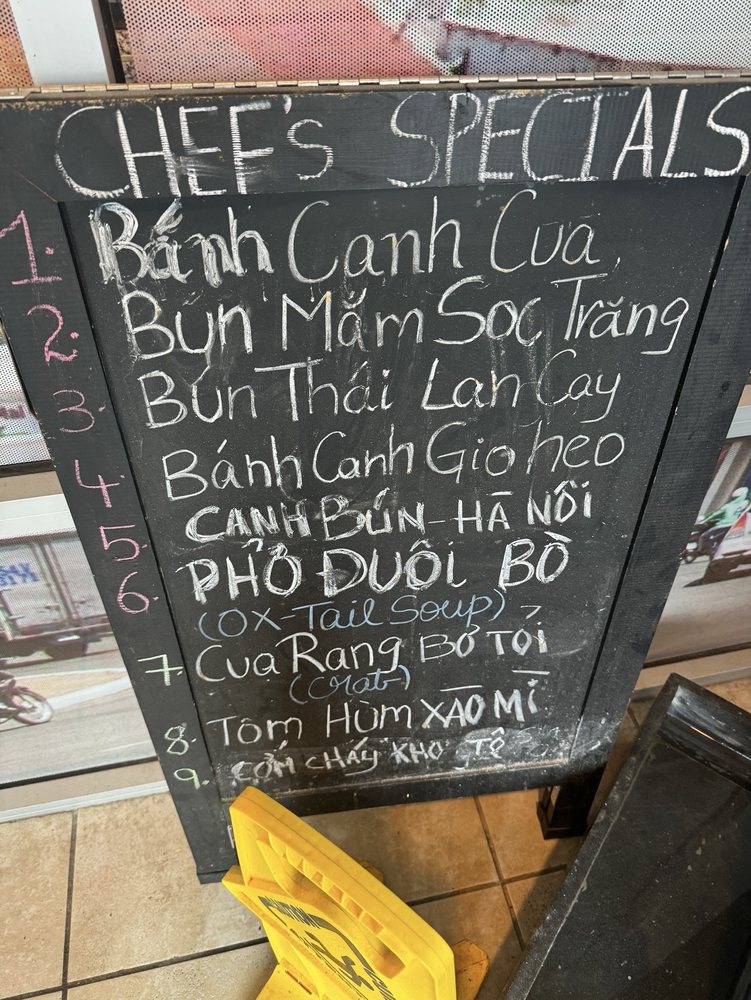 CHEF'S SPECIALS
1. Bánh Canh Cua
2. Bún Mắm Soc Trăng
3. Bún Thái Lan Cay
4. Bánh Canh Gio heo
5. CANH BÚN - HÀ NÔI
6. PHỞ ĐUÔI BÒ
(OX-Tail Soup)
7. Cua Rang BƠ TỎI
(Crab)
8. Tôm Hùm XÀO MÌ
9. CƠM CHÁY KHO TỘ